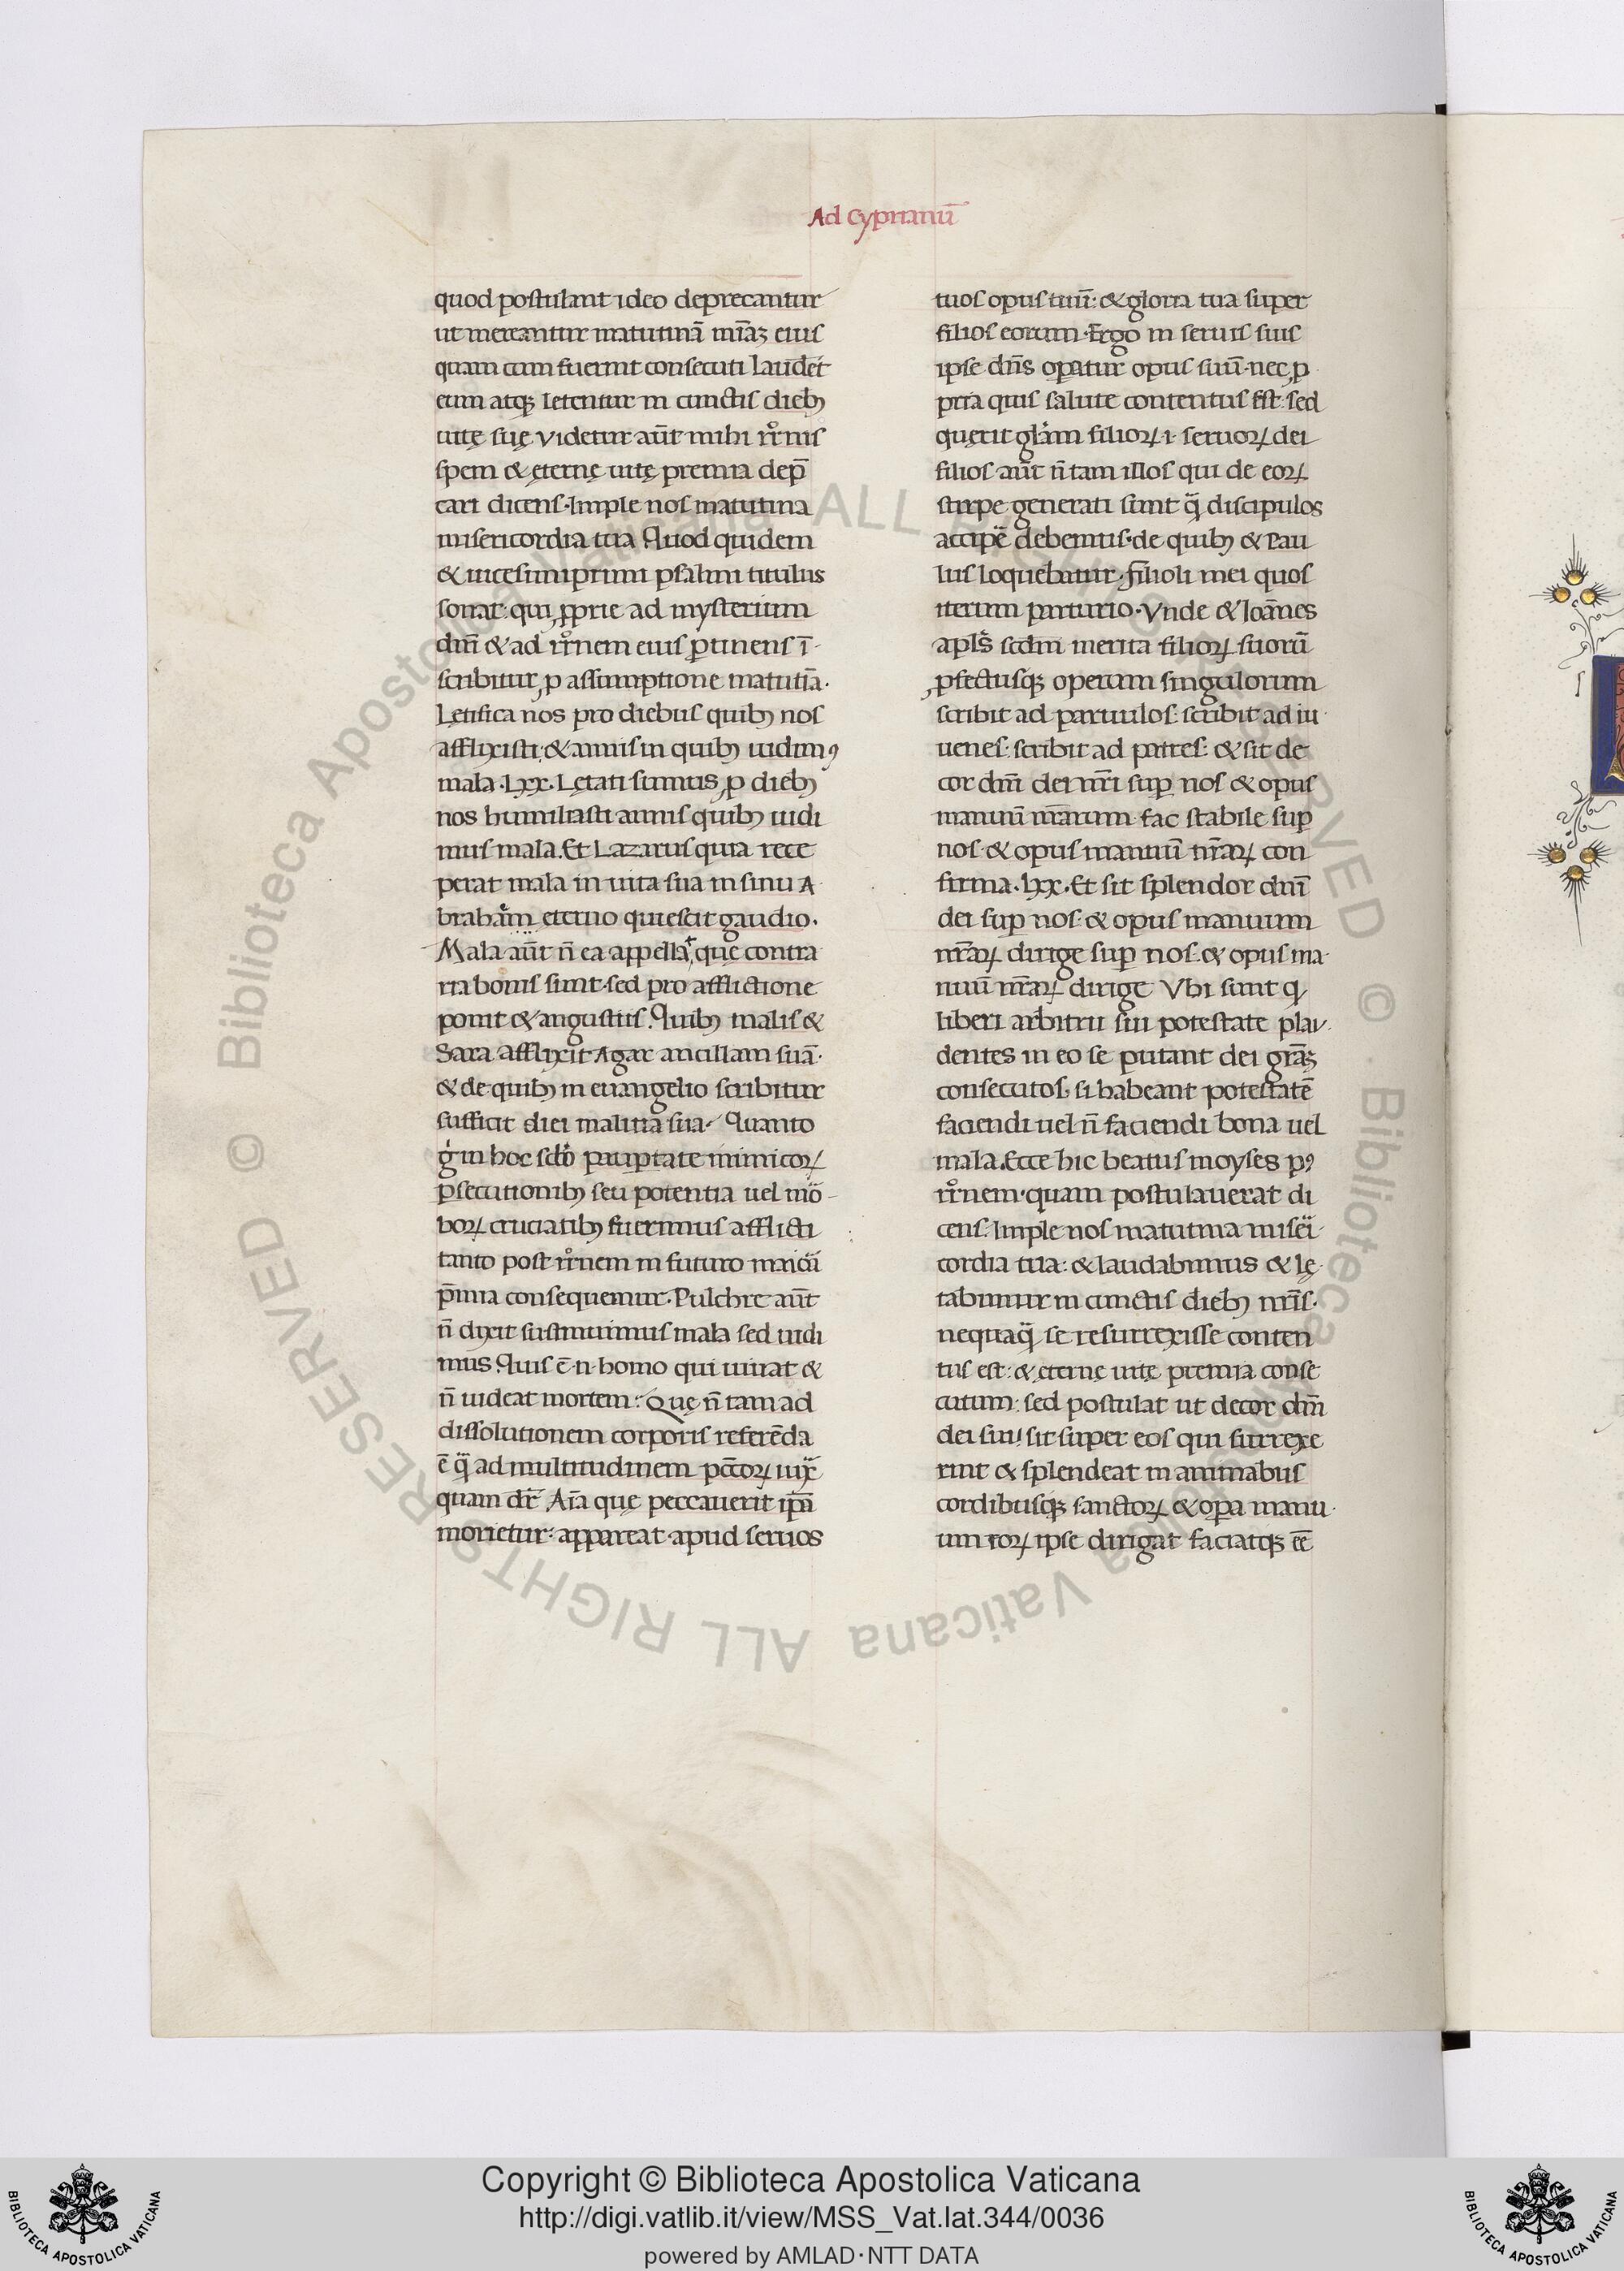 Ad cyprianū
quod postulant ideo deprecantur
ut mereantur matutinā mīaꝫ eius
quam cum fuerint consecuti laudēt
eum atqꝫ letentur in cunctis diebꝫ
uitę suę videtur aūt mihi rͦrnis
spem & ęternę uitę premia dep̄
cari dicens·Imple nos matutina
misericordia tua Quod quidem
& uicesimiprimi psalmi titulus
sonat· qui ꝓprie ad mysterium
dnī & ad rͦrnem eius ꝑtinens ī
scribitur ꝓ assumptione matutīa·
Letifica nos pro diebus quibꝫ nos
afflixisti·& annis in quibꝫ uidimꝰ
mala·lxx·Lętati sumus ꝓ diebꝫ
nos humiliasti annis quibꝫ uidi
mus mala.Et Lazarus quia rece
perat mala in uita sua in sinu A
brahām eterno quiescit gaudio.
Mala aūt n̄ ea appellat quę contra
ria bonis sunt·sed pro afflictione
ponit & angustiis.Quibꝫ malis &
Sara afflixit Agar ancillam suā·
& de quibꝫ in euangelio scribitur
sufficit diei malitia sua· Quanto
gͥ in hoc sclo paupertate inimicoꝝ
ꝑsecutionibꝫ seu potentia uel mo
boꝝ cruciatibꝫ fuerimus afflicti
tanto post rͦrnem in futuro maiora
p̄mia consequemur·Pulchre aūt
n̄ dixit sustinuimus mala sed uidi
mus.Quis ē n homo qui uiuat &
n̄ uideat mortem· Quę n̄ tam ad
dissolutionem corporis referēda
ē q̄ ad multitudinem pccoꝝ iux
quam dr̄ Aīa quę peccauerit ipā
morietur·appareat apud seruos
tuos opus tuū: & gloria tua super
filios eorum·Ergo in seruis suis
ipse dn̄s oꝑatur opus suū·nec ꝓ
pria quis salute contentus est·sed
querit glām filioꝝ ·i· seruoꝝ dei
filios aūt n̄ tam illos qui de eoꝝ
stirpe generati sunt q̄ discipulos
accipē debemus·de quibꝫ & Pau
lus loquebatur·filioli mei quos
iterum parturio·Vnde & Ioānes
apls̄ scdm merita filioꝝ suorū
ꝓfectusqꝫ operum singulorum
scribit ad paruulos: scribit ad iu
uenes: scribit ad patres: & sit de
cor dnī dei nr̄i suꝑ nos & opus
manuū nr̄arum fac stabile suꝑ
nos·& opus manuū nr̄aꝝ con
firma·lxx·Et sit splendor dnī
dei suꝑ nos·& opus manuum
nr̄aꝝ dirige suꝑ nos·& opus ma
nuū nr̄aꝝ dirige Vbi sunt q
liberi arbitrii sui potestate plau
dentes in eo se putant dei grāꝫ
consecutos·si habeant potestatē
faciendi uel n̄ faciendi bona uel
mala.Ecce hic beatus moyses pꝰ
rͦrnem·quam postulauerat di
cens·Imple nos matutina miseri
cordia tua: & laudabimus & lę
tabimur in cunctis diebꝫ nr̄is·
nequaq̄ se resurrexisse conten
tus est: & ęternę uitę premia conse
cutum: sed postulat ut decor dnī
dei sui sit super eos qui surrexe
rint & splendeat in animabus
cordibusqꝫ sanctoꝝ & oꝑa manu
um eoꝝ ipse dirigat faciatqꝫ eē
© Biblioteca Apostolica Vaticana ALL RIGHTS RESERVED
© Biblioteca Apostolica Vaticana ALL RIGHTS RESERVED
Copyright © Biblioteca Apostolica Vaticana
http://digi.vatlib.it/view/MSS_Vat.lat.344/0036
powered by AMLAD·NTT DATA
BIBLIOTECA APOSTOLICA VATICANA
BIBLIOTECA APOSTOLICA VATICANA